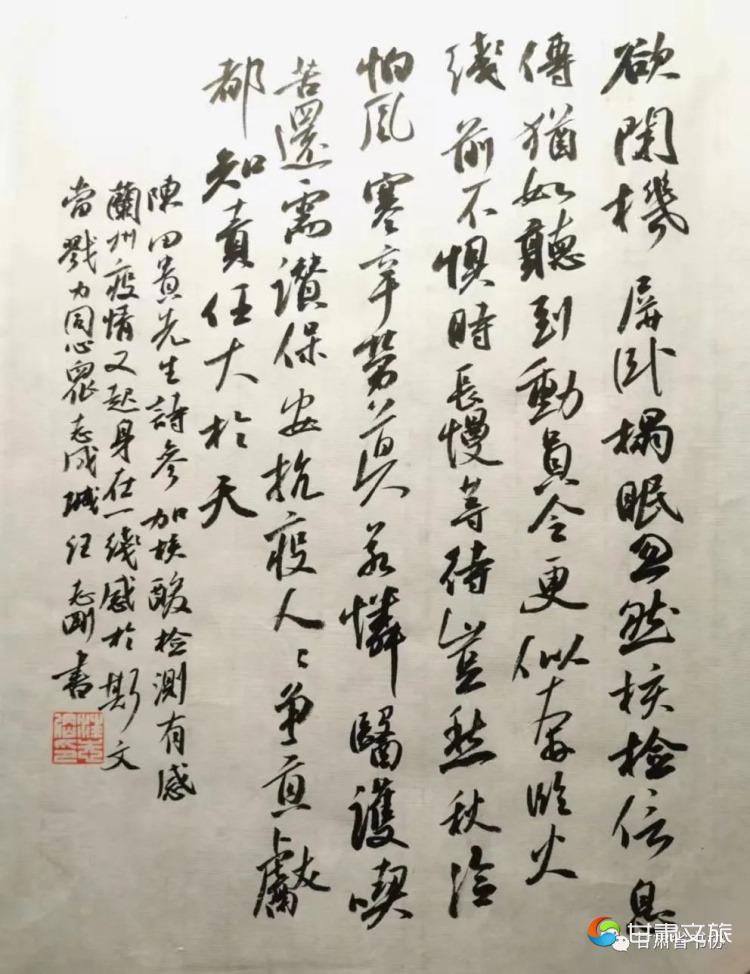 欲関機屏卧榻眠忽然核檢信息
傳猶如聽到動員令更似奔臨火
綫前不懼時長慢等待豈愁秋冷
怕風寒辛勞真若憐醫護喫
苦還需讃保安抗疫人々争貢獻
都知責任大於天
陳田貴先生詩參加核酸檢測有感
蘭州疫情又起身在一綫感於斯文
當戮力同心衆志成城任志剛書
甘肃文旅
甘肃省书协